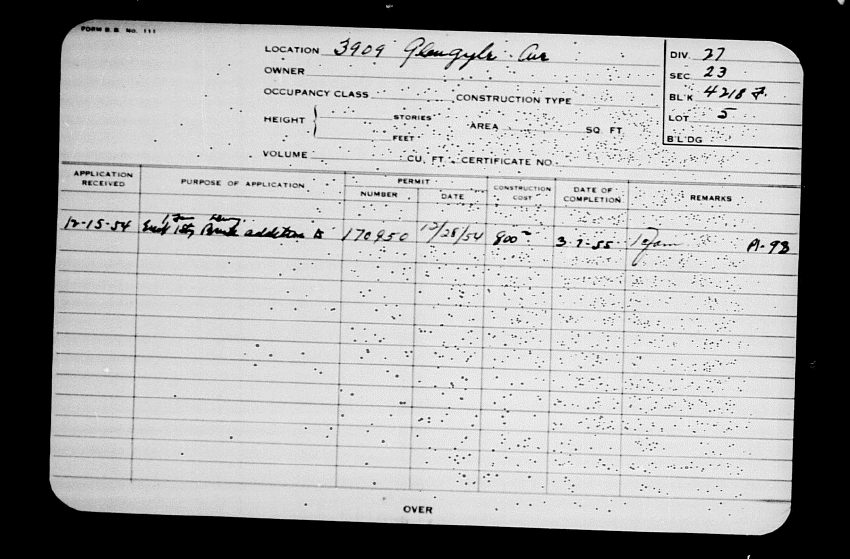 FORM B. B. No. 111
LOCATION 3909 Glengyle Ave
OWNER
OCCUPANCY CLASS CONSTRUCTION TYPE
HEIGHT STORIES AREA SQ. FT.
FEET
VOLUME CU. FT. CERTIFICATE NO.
DIV. 27
SEC. 23
BL'K 4218 F.
LOT 5
BL'DG
APPLICATION RECEIVED PURPOSE OF APPLICATION PERMIT NUMBER DATE CONSTRUCTION COST DATE OF COMPLETION REMARKS
1 Fam
12-15-54 1 sty Brick addition to 170950 12/28/54 800 3-7-55 A-98
OVER